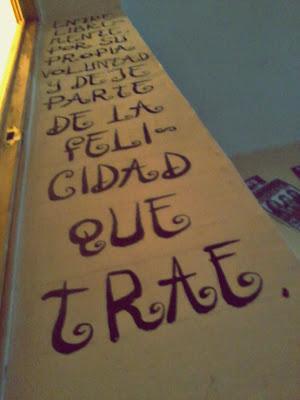 ENTRE
LIBRE-
MENTE
POR SU
PROPIA
VOLUNTAD
Y DEJE
PARTE
DE LA
FELI-
CIDAD
QUE
TRAE.